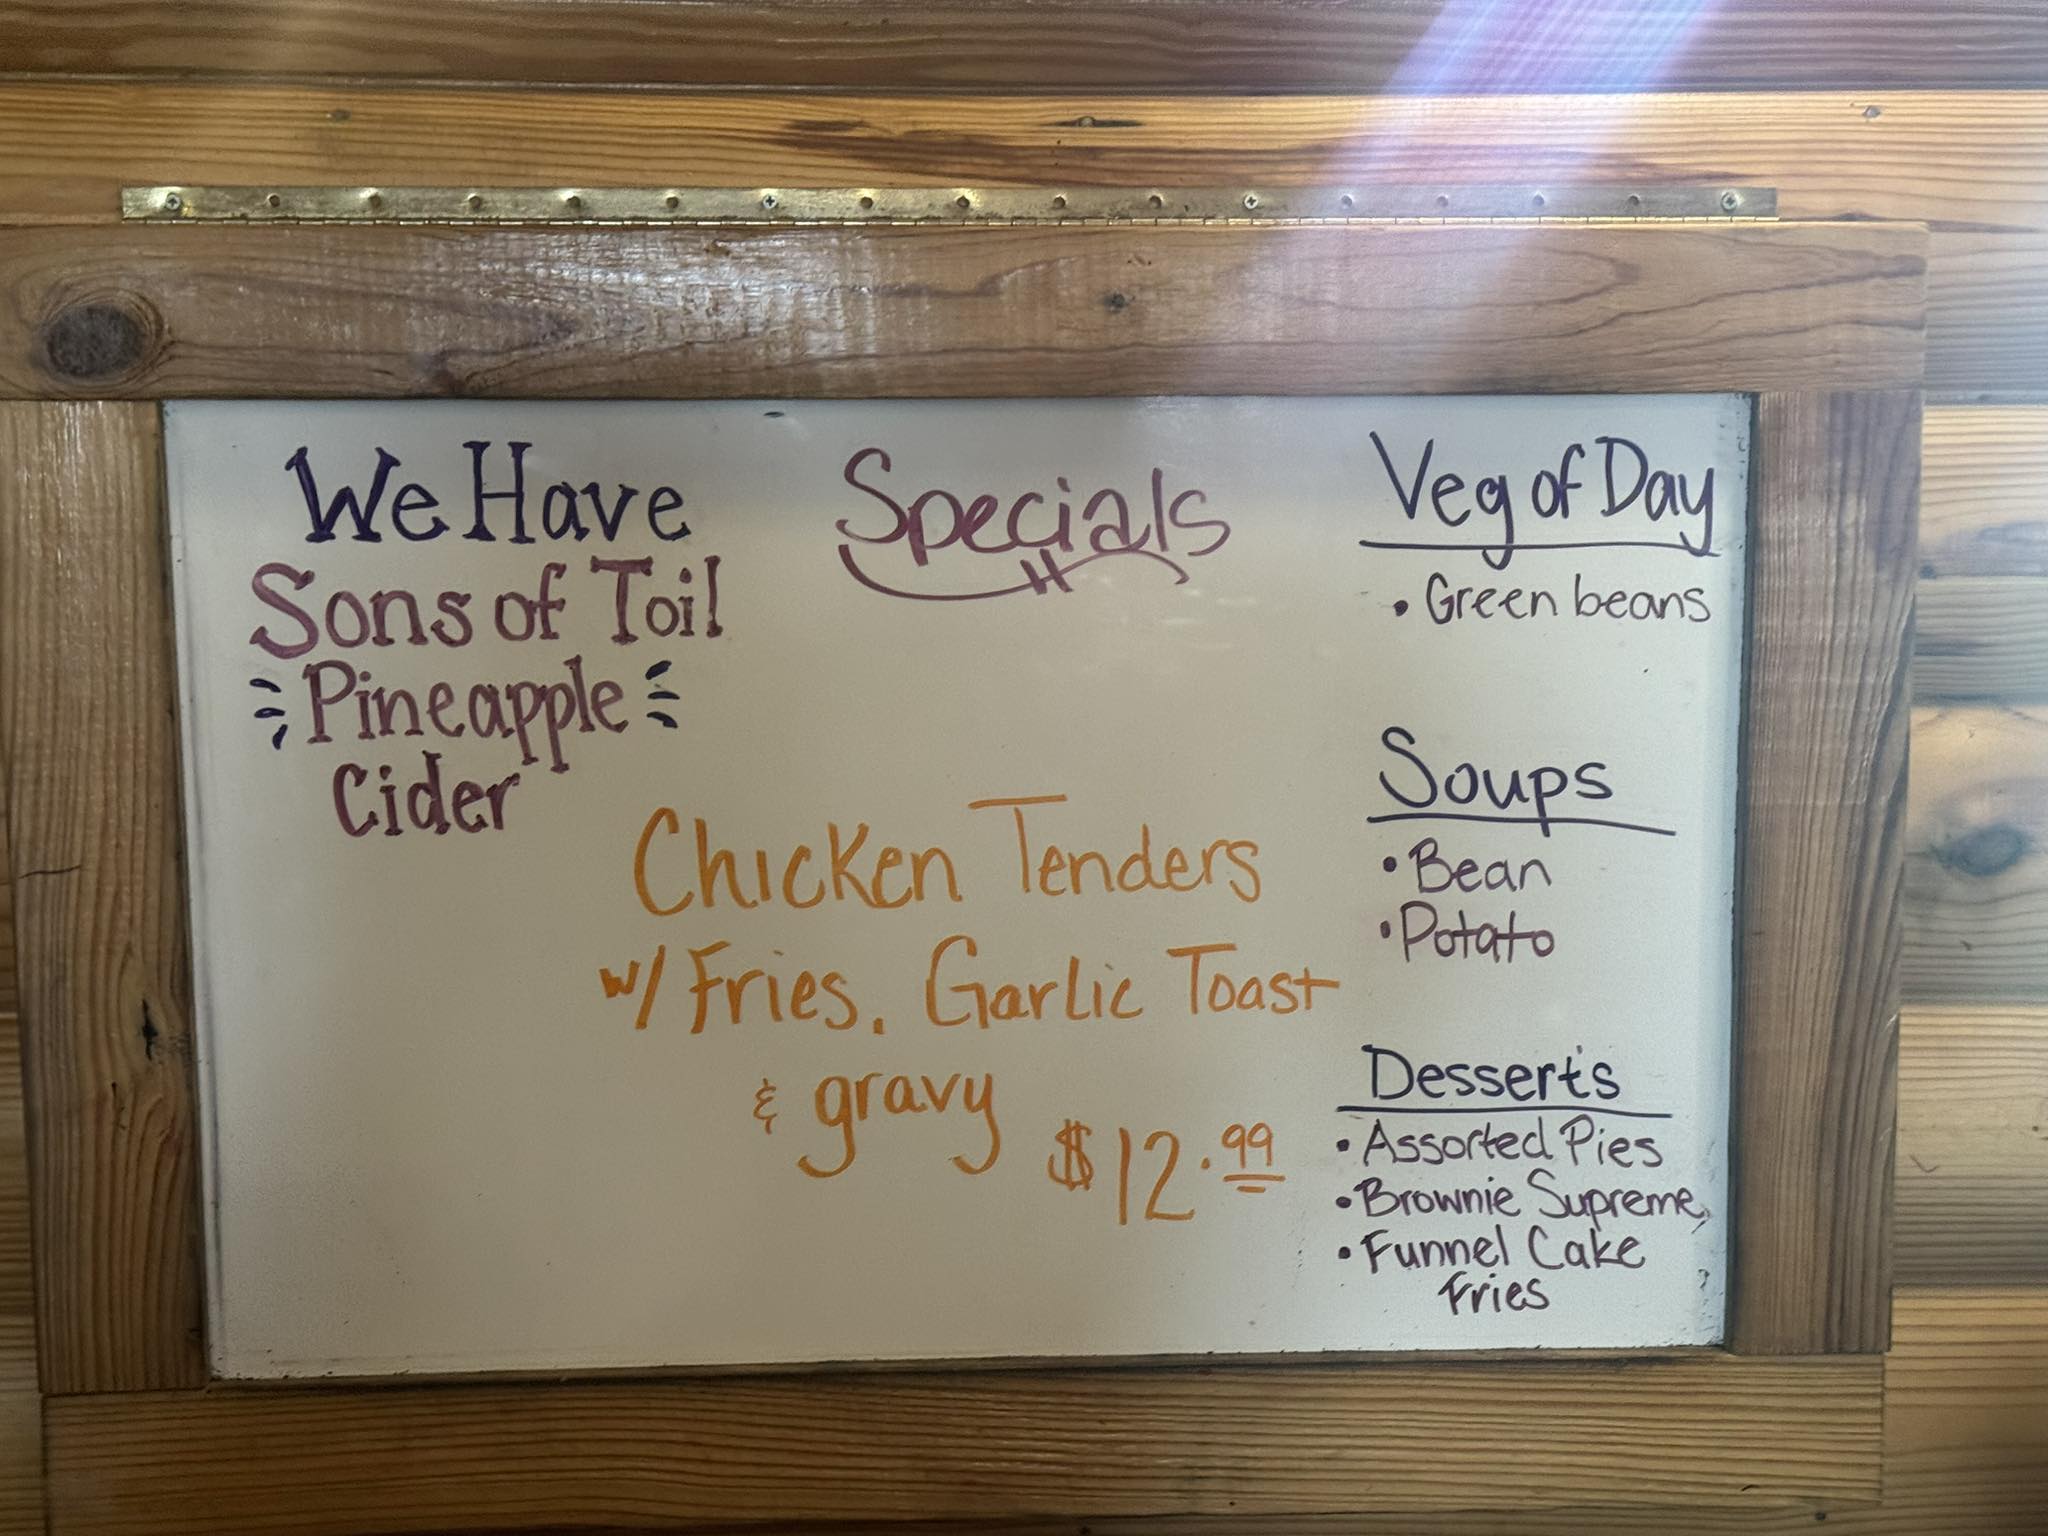 We Have
Sons of Toil
Pineapple
Cider
Specials
Chicken Tenders
w/ Fries, Garlic Toast
& gravy
$12.99
Veg of Day
• Green beans
Soups
• Bean
• Potato
Desserts
• Assorted Pies
• Brownie Supreme,
• Funnel Cake
Fries